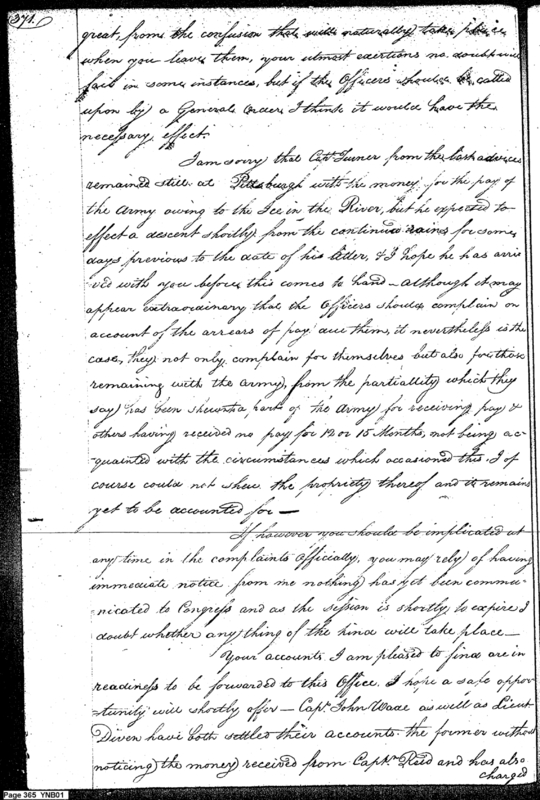 371.
great from the confusion that will naturally take place
when you leave them, your utmost exertions no doubt will
fail in some instances, but if the Officers should be called
upon by a General Order I think it would have the
necessary effect.
I am sorry that Capt. Turner from the last advices
remained still at Pittsburgh with the money for the pay of
the Army owing to the Ice in the River, but he expected to
effect a descent shortly from the continued rains for some
days previous to the date of his letter, & I hope he has arri
ved with you before this comes to hand - although it may
appear extraordinary that the Officers should complain on
account of the arrears of pay due them, it nevertheless is the
case, they not only complain for themselves but also for those
remaining with the Army, from the partiallity which they
say has been shewn a part of the Army for receiving pay &
others having received no pay for 12 or 15 Months, not being ac-
quainted with the circumstances which occasioned this. I of
course could not shew the propriety thereof and it remains
yet to be accounted for —
If however you should be implicated at
any time in the complaints Officially, you may rely of having
immediate notice from me nothing has yet been commu-
-nicated to Congress and as the session is shortly to expire I
doubt whether any thing of the kind will take place —
Your accounts I am pleased to find are in
readiness to be forwarded to this Office. I hope a safe oppor-
-tunity will shortly offer — Capt. John Wade as well as Lieut
Diven have both settled their accounts the former without
noticing the money received from Captn. Reed and has also
charged
Page 365 YNB01